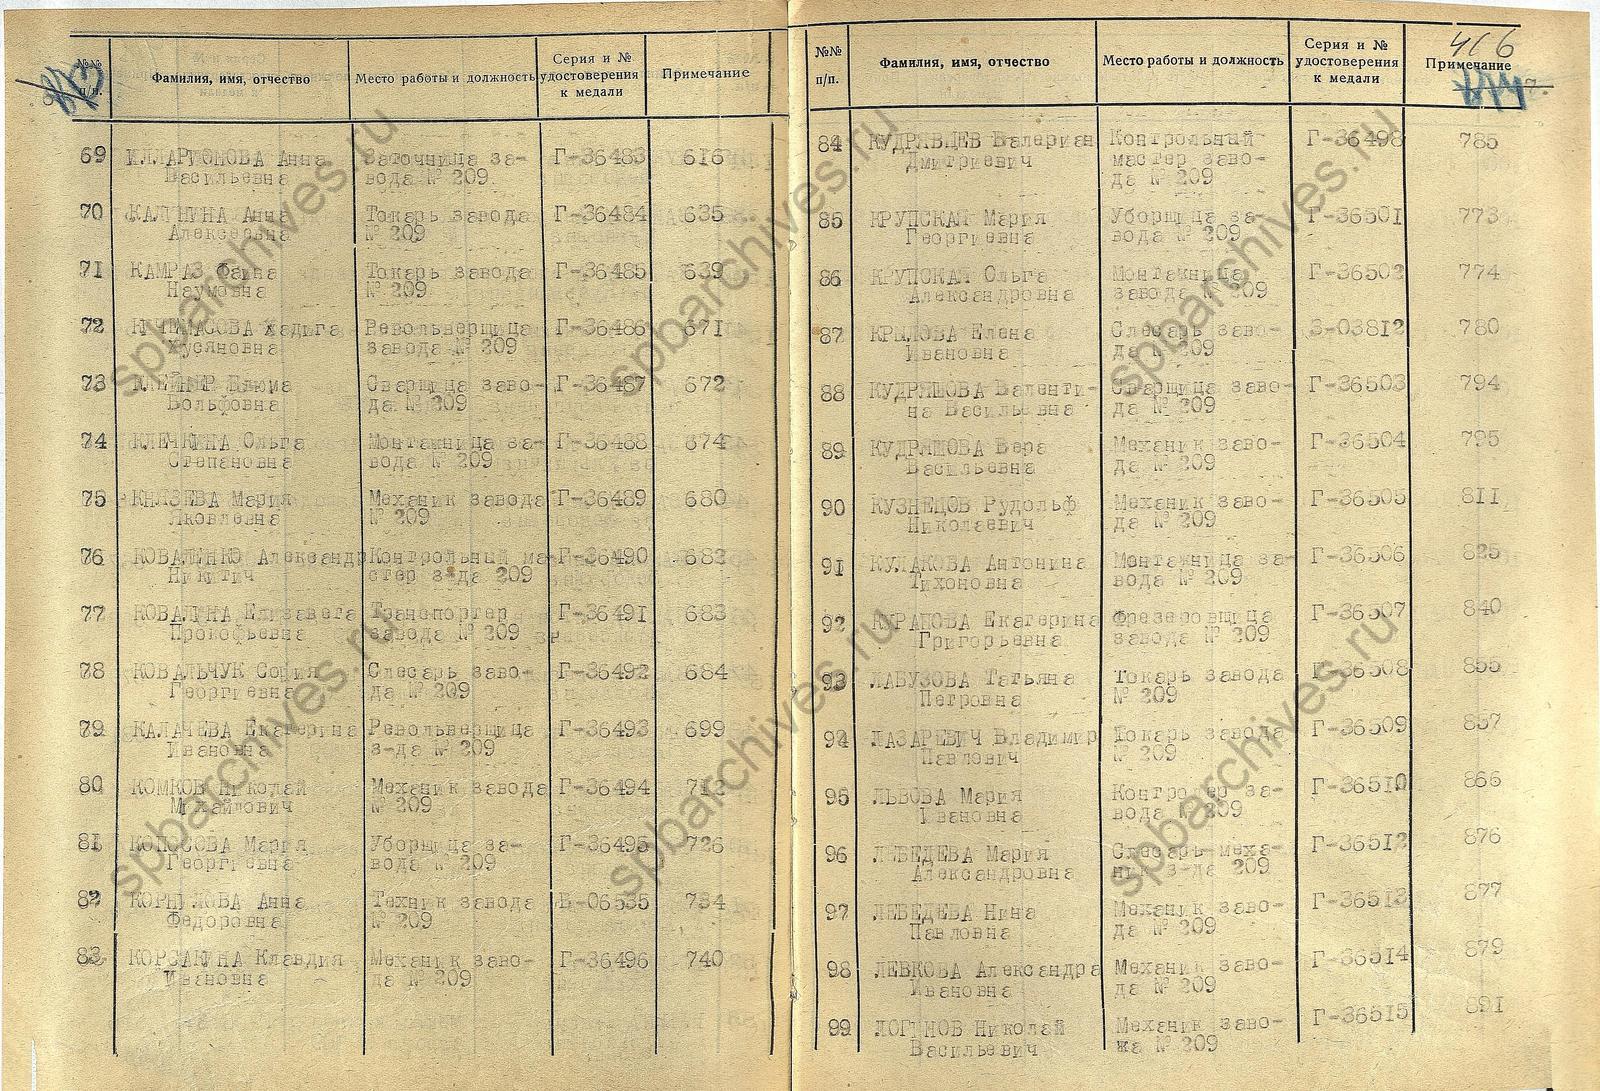 №№ п/п. Фамилия, имя, отчество Место работы и должность Серия и № удостоверения к медали Примечание
69 ИЛЛАРИОНОВА Анна Заточница за- Г-36483 616
Васильевна вода № 209
70 КАЛИНИНА Анна Токарь завода Г-36484 635
Алексеевна № 209
71 КАМРАЗ Фаина Токарь завода Г-36485 639
Наумовна № 209
72 Хадыга Револьверщица Г-36486 671
Хусяновна завода № 209
73 КЛЕЙНЕР Блюма Сварщица заво- Г-36487 672
Вольфовна да № 209
74 КЛЕЧКИНА Ольга Монтажница за- Г-36488 674
Степановна вода № 209
75 КНЯЗЕВА Мария Механик завода Г-36489 680
Яковлевна № 209
76 КОВАЛЕНКО Александр Контрольный ма- Г-36490 682
Никитич стер з-да 209
77 КОВАЛИНА Елизавета Транспортер Г-36491 683
Прокофьевна завода № 209
78 КОВАЛЬЧУК София Слесарь заво- Г-36492 684
Георгиевна да № 209
79 КАЛАЧЕВА Екатерина Револьверщица Г-36493 699
Ивановна з-да № 209
80 КОМКОВ Николай Механик завода Г-36494 712
Михайлович № 209
81 КОПОСОВА Мария Уборщица за- Г-36495 726
Георгиевна вода № 209
82 КОРНИЛОВА Анна Техник завода В-06535 734
Федоровна № 209
83 КОРСАКИНА Клавдия Механик заво- Г-36496 740
Ивановна да № 209
406
№№ п/п. Фамилия, имя, отчество Место работы и должность Серия и № удостоверения к медали Примечание
84 КУДРЯВЦЕВ Валериан Контрольный Г-36498 785
Дмитриевич мастер заво-
да № 209
85 КРУПСКАЯ Мария Уборщица за- Г-36501 773
Георгиевна вода № 209
86 КРУПСКАЯ Ольга Монтажница Г-36502 774
Александровна завода № 209
87 КРЫЛОВА Елена Слесарь заво- З-03812 780
Ивановна да № 209
88 КУДРЯШОВА Валенти- Сварщица заво- Г-36503 794
на Васильевна да № 209
89 КУДРЯШОВА Вера Механик заво- Г-36504 795
Васильевна да № 209
90 КУЗНЕЦОВ Рудольф Механик заво- Г-36505 811
Николаевич да № 209
91 КУЛАКОВА Антонина Монтажница за- Г-36506 825
Тихоновна вода № 209
92 КУРАПОВА Екатерина Фрезеровщица Г-36507 840
Григорьевна завода № 209
93 ЛАБУЗОВА Татьяна Токарь завода Г-36508 855
Петровна № 209
94 ЛАЗАРЕВИЧ Владимир Токарь завода Г-36509 857
Павлович № 209
95 ЛЬВОВА Мария Контролер за- Г-36510 866
Ивановна вода № 209
96 ЛЕБЕДЕВА Мария Слесарь-меха- Г-36512 876
Александровна ник з-да 209
97 ЛЕБЕДЕВА Нина Механик заво- Г-36513 877
Павловна да № 209
98 ЛЕВКОВА Александра Механик заво- Г-36514 879
Ивановна да № 209
99 ЛОГИНОВ Николай Механик заво- Г-36515 891
Васильевич жа № 209
spbarchives.ru
spbarchives.ru
spbarchives.ru
spbarchives.ru
spbarchives.ru
spbarchives.ru